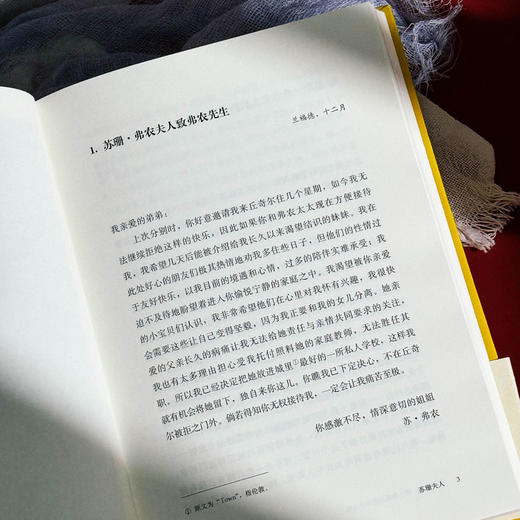 1. 苏珊·弗农夫人致弗农先生
兰福德，十二月
我亲爱的弟弟：
上次分别时，你好意邀请我来丘奇尔住几个星期，如今我无
法继续拒绝这样的快乐，因此如果你和弗农太太现在方便接待
我，我希望几天后能被介绍给我长久以来渴望结识的妹妹。我在
此处好心的朋友们极其热情地劝我多住些日子，但他们的性情过
于友好快乐，以我目前的境遇和心情，过多的陪伴实难承受；我
迫不及待地盼望着进入你愉悦宁静的家庭之中。我渴望被你亲爱
的小宝贝们认识，我非常希望他们在心里对我怀有兴趣，我很快
会需要这些让自己变得坚毅，因为我正要和我的女儿分离。她亲
爱的父亲长久的病痛让我无法给她责任与亲情共同要求的关注，
我也有太多理由担心受我托付照料她的家庭教师，无法胜任其
职。所以我已经决定把她放进城里①最好的一所私人学校，这样我
就有机会将她留下，独自来你这儿。你瞧我已下定决心，不在丘奇
尔被拒之门外。倘若得知你无权接待我，一定会让我痛苦至极。
你感激不尽，情深意切的姐姐
苏·弗农
① 原文为“Town”，指伦敦。
苏珊夫人 3